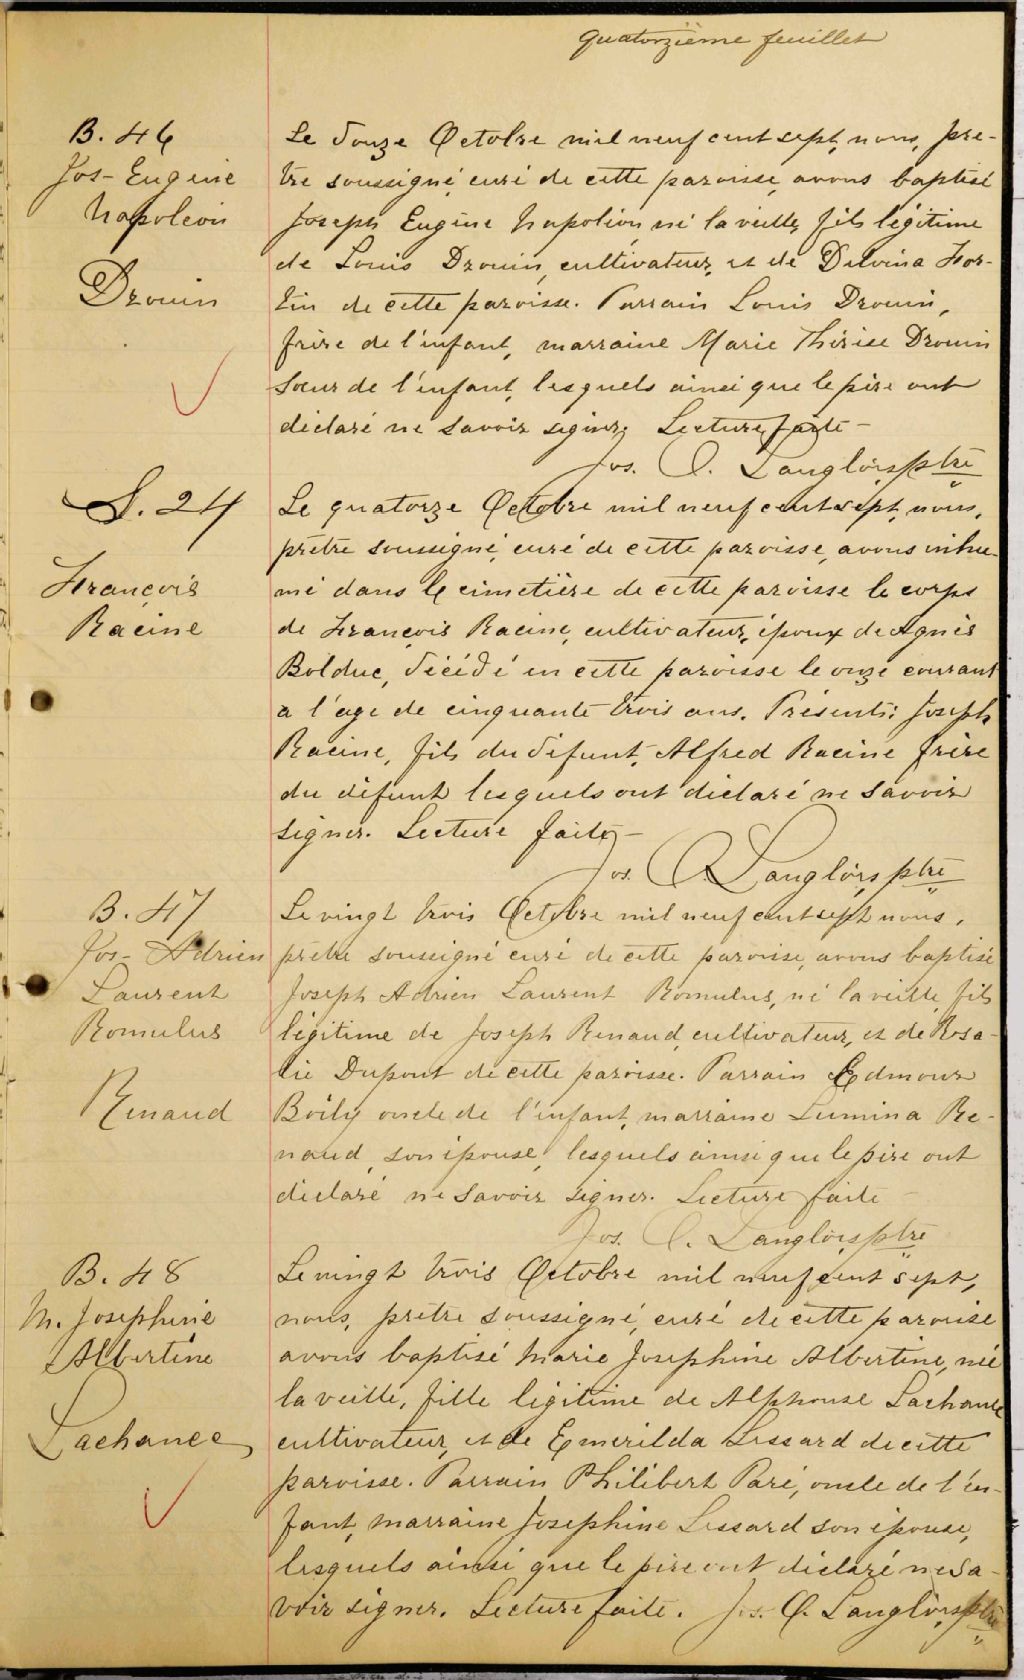 quatorzième feuillet
B. 46
Jos-Eugène
Napoléon
Drouin
Le douze Octobre mil neuf cent sept, nous, prê-
tre soussigné, curé de cette paroisse, avons baptisé
Joseph Eugène Napoléon, né la veille, fils légitime
de Louis Drouin, cultivateur, et de Delvina For-
tin de cette paroisse. Parrain Louis Drouin,
frère de l'enfant, marraine Marie Thérèse Drouin
soeur de l'enfant, lesquels ainsi que le père ont
déclaré ne savoir signer. Lecture faite-
Jos. O. Langlois, ptre
S. 24
François
Racine
Le quatorze Octobre mil neuf cent sept, nous,
prêtre soussigné, curé de cette paroisse, avons inhu-
mé dans le cimetière de cette paroisse le corps
de François Racine, cultivateur, époux de Agnès
Bolduc, décédé en cette paroisse le onze courant
a l'age de cinquante trois ans. Présents: Joseph
Racine, fils du défunt, Alfred Racine frère
du défunt lesquels ont déclaré ne savoir
signer. Lecture faite-
Jos. O. Langlois ptre
B. 47
Jos- Adrien
Laurent
Romulus
Renaud
Le vingt trois Octobre mil neuf cent sept nous,
prêtre soussigné curé de cette paroisse, avons baptisé
Joseph Adrien Laurent Romulus, né la veille, fils
légitime de Joseph Renaud, cultivateur, et de Rosa-
lie Dupont de cette paroisse. Parrain Edmour
Boily oncle de l'enfant, marraine Lumina Re-
naud, son épouse, lesquels ainsi que le père ont
déclaré ne savoir signer. Lecture faite-
Jos. O. Langlois, ptre
B. 48
M. Josephine
Albertine
Lachance
Le vingt trois Octobre mil neuf cent sept,
nous, prêtre soussigné, curé de cette paroisse
avons baptisé Marie Josephine Albertine, née
la veille, fille légitime de Alphonse Lachance
cultivateur, et de Emerilda Lessard de cette
paroisse. Parrain Philibert Paré, oncle de l'en-
fant, marraine Josephine Lessard son épouse,
lesquels ainsi que le père ont déclaré ne sa-
voir signer. Lecture faite. Jos. O. Langlois ptre